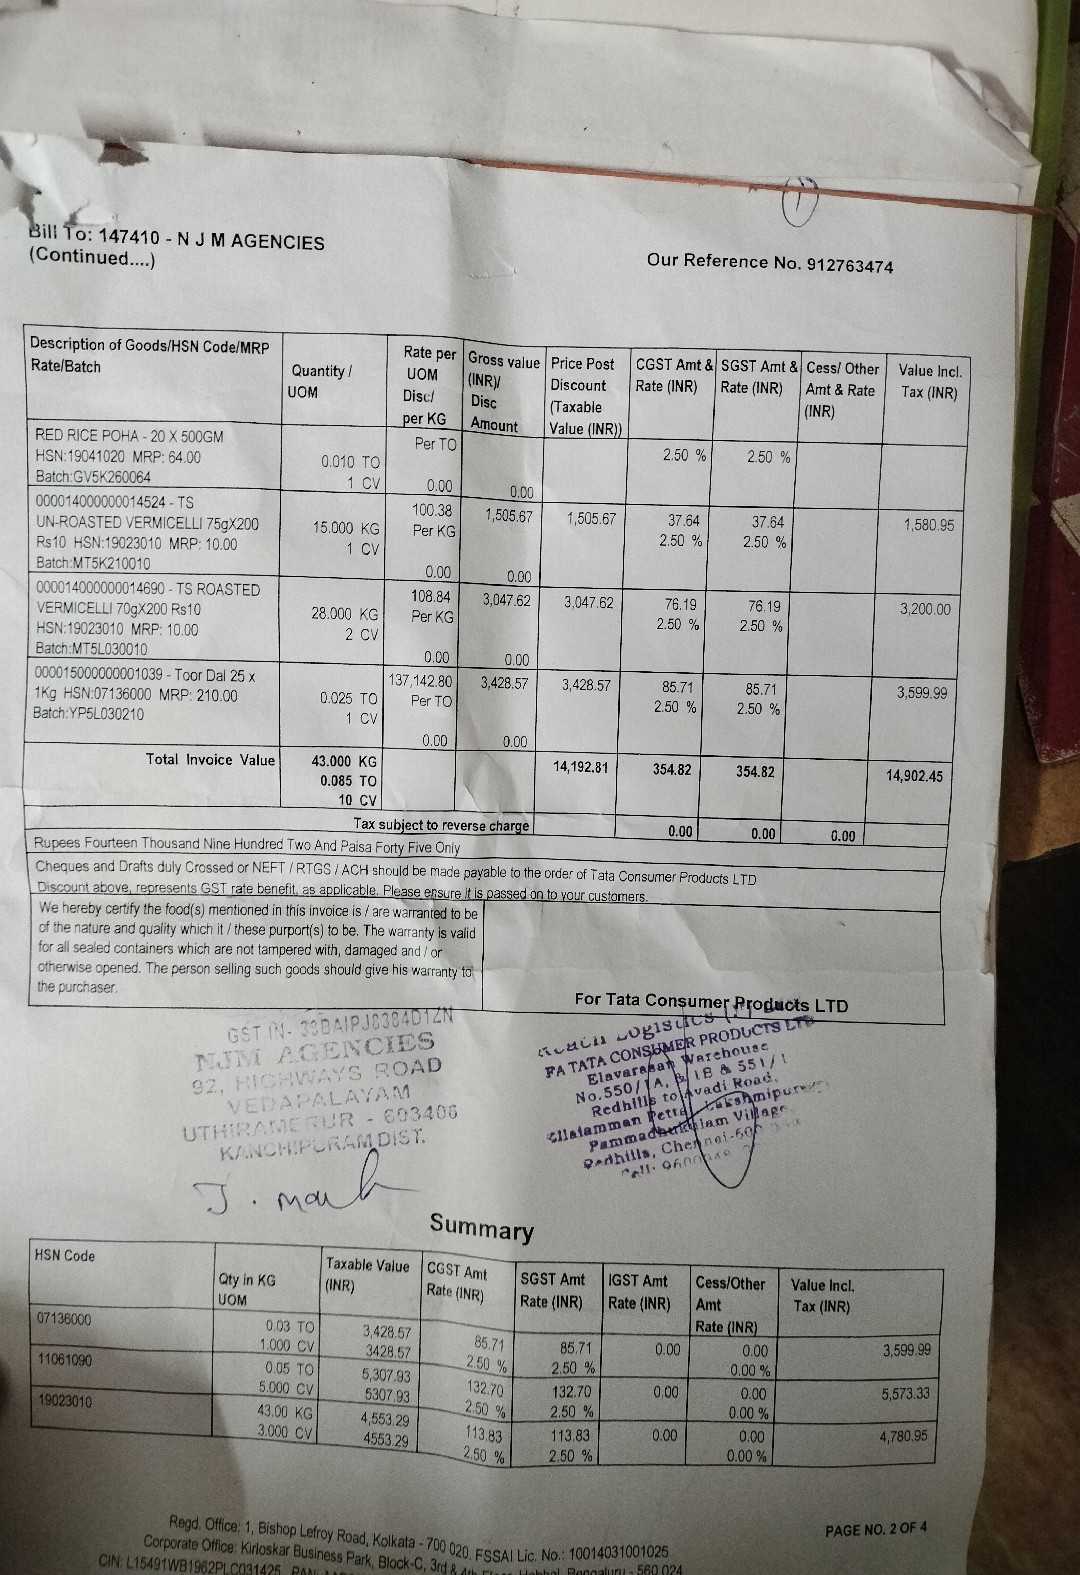 Bill To: 147410 - N J M AGENCIES
(Continued....)
Our Reference No. 912763474
Description of Goods/HSN Code/MRP Rate/Batch | Quantity / UOM | Rate per UOM Disc/ per KG | Gross value (INR)/ Disc Amount | Price Post Discount (Taxable Value (INR)) | CGST Amt & Rate (INR) | SGST Amt & Rate (INR) | Cess/ Other Amt & Rate (INR) | Value Incl. Tax (INR)
RED RICE POHA - 20 X 500GM Per TO
HSN:19041020 MRP: 64.00 0.010 TO 2.50 % 2.50 %
Batch:GV5K260064 1 CV 0.00 0.00
000014000000014524 - TS 100.38 1,505.67 1,505.67 37.64 37.64 1,580.95
UN-ROASTED VERMICELLI 75gX200 15.000 KG Per KG 2.50 % 2.50 %
Rs10 HSN:19023010 MRP: 10.00 1 CV
Batch:MT5K210010 0.00 0.00
000014000000014690 - TS ROASTED 108.84 3,047.62 3,047.62 76.19 76.19 3,200.00
VERMICELLI 70gX200 Rs10 28.000 KG Per KG 2.50 % 2.50 %
HSN:19023010 MRP: 10.00 2 CV
Batch:MT5L030010 0.00 0.00
000015000000001039 - Toor Dal 25 x 137,142.80 3,428.57 3,428.57 85.71 85.71 3,599.99
1Kg HSN:07136000 MRP: 210.00 0.025 TO Per TO 2.50 % 2.50 %
Batch:YP5L030210 1 CV
0.00 0.00
Total Invoice Value 43.000 KG 14,192.81 354.82 354.82 14,902.45
0.085 TO
10 CV
Tax subject to reverse charge 0.00 0.00 0.00
Rupees Fourteen Thousand Nine Hundred Two And Paisa Forty Five Only
Cheques and Drafts duly Crossed or NEFT / RTGS / ACH should be made payable to the order of Tata Consumer Products LTD
Discount above, represents GST rate benefit, as applicable. Please ensure it is passed on to your customers.
We hereby certify the food(s) mentioned in this invoice is / are warranted to be
of the nature and quality which it / these purport(s) to be. The warranty is valid
for all sealed containers which are not tampered with, damaged and / or
otherwise opened. The person selling such goods should give his warranty to
the purchaser.
For Tata Consumer Products LTD
GST IN- 33BAIPJ8384D1ZN
NJM AGENCIES
92, HIGHWAYS ROAD
VEDAPALAYAM
UTHIRAMERUR - 603406
KANCHIPURAM DIST.
Logistics
FA TATA CONSUMER PRODUCTS LTD
Elavarasan Warehouse
No.550/1A, 1B & 551/1
Redhills to Avadi Road,
Village
Redhills, Chennai-
Summary
HSN Code | Qty in KG UOM | Taxable Value (INR) | CGST Amt Rate (INR) | SGST Amt Rate (INR) | IGST Amt Rate (INR) | Cess/Other Amt Rate (INR) | Value Incl. Tax (INR)
07136000 0.03 TO 3,428.57 85.71 85.71 0.00 0.00 3,599.99
1.000 CV 3428.57 2.50 % 2.50 % 0.00 %
11061090 0.05 TO 5,307.93 132.70 132.70 0.00 0.00 5,573.33
5.000 CV 5307.93 2.50 % 2.50 % 0.00 %
19023010 43.00 KG 4,553.29 113.83 113.83 0.00 0.00 4,780.95
3.000 CV 4553.29 2.50 % 2.50 % 0.00 %
PAGE NO. 2 OF 4
Regd. Office: 1, Bishop Lefroy Road, Kolkata - 700 020. FSSAI Lic. No.: 10014031001025
Corporate Office: Kirloskar Business Park, Block-C, 3rd & 4th Floor, Hebbal, Bengaluru - 560 024
CIN: L15491WB1962PLC031425